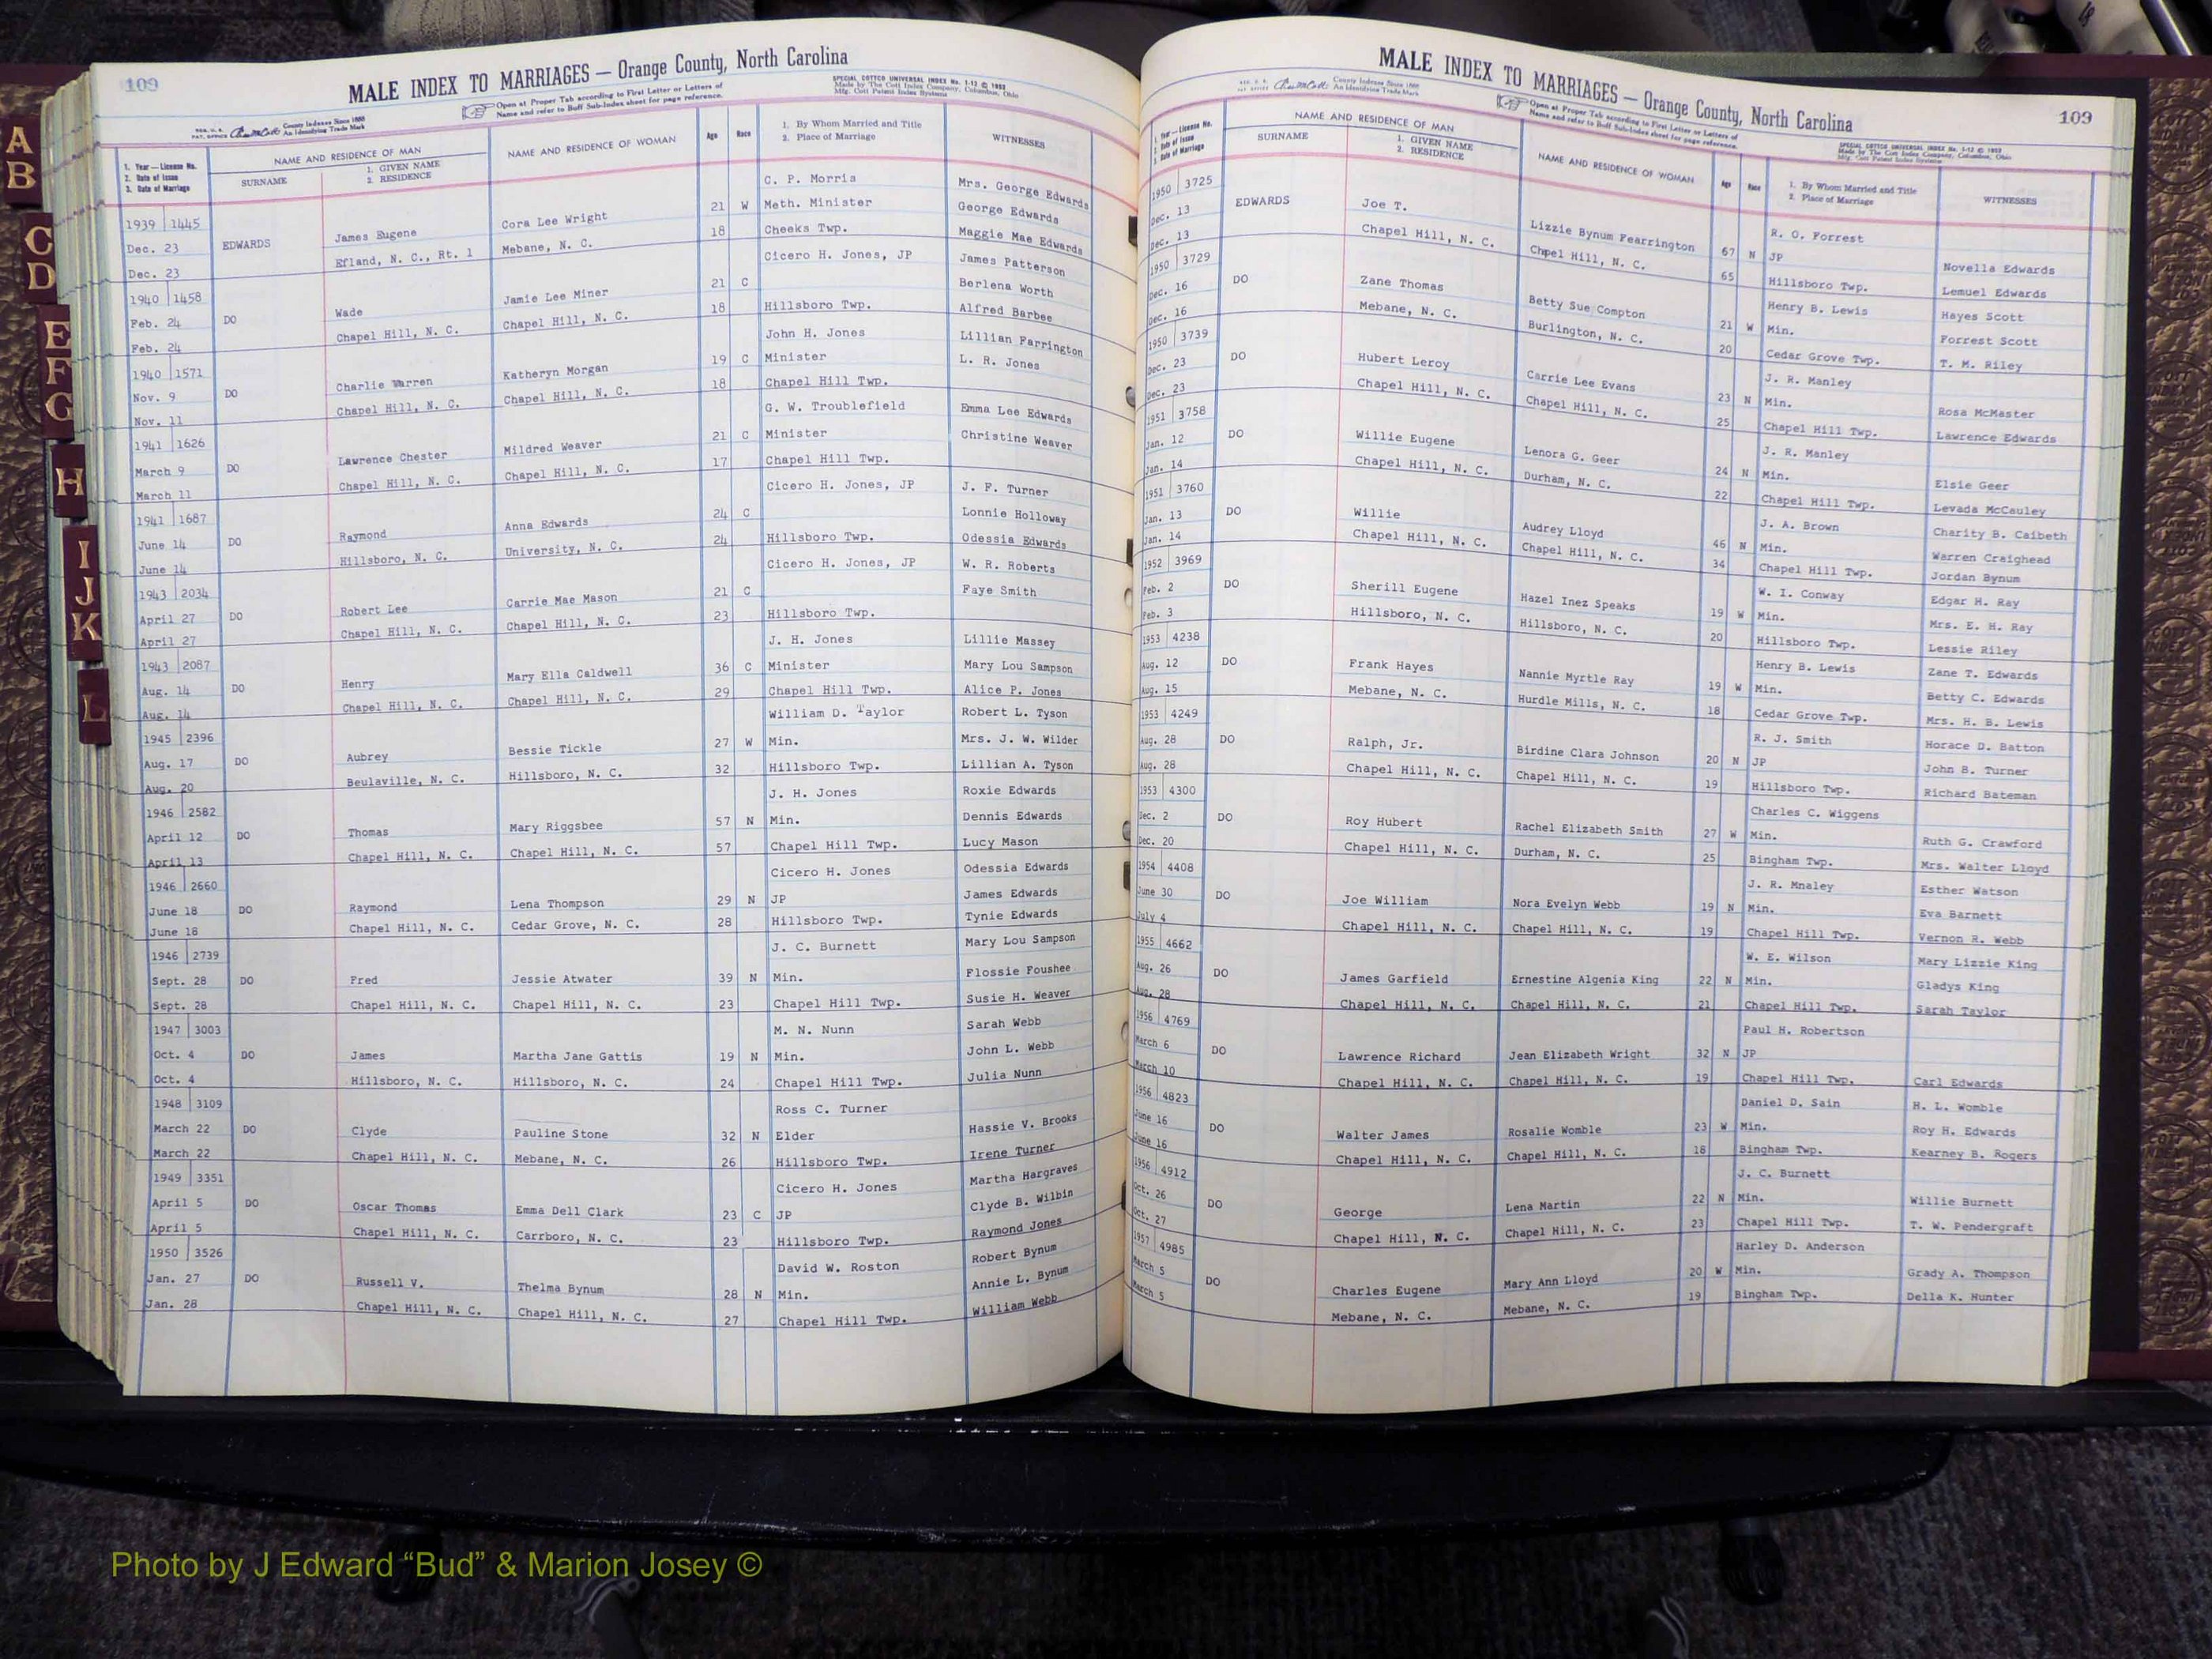 109
MALE INDEX TO MARRIAGES — Orange County, North Carolina
SPECIAL COTTCO UNIVERSAL INDEX No. 1-12 © 1952
Made by The Cott Index Company, Columbus, Ohio
Mfg. Cott Patent Index Systems
Open at Proper Tab according to First Letter or Letters of
Name and refer to Buff Sub-Index sheet for page reference.
County Indexes Since 1888
An Identifying Trade Mark
1. Year — License No.
2. Date of Issue
3. Date of Marriage
NAME AND RESIDENCE OF MAN
SURNAME
1. GIVEN NAME
2. RESIDENCE
NAME AND RESIDENCE OF WOMAN
Age
Race
1. By Whom Married and Title
2. Place of Marriage
WITNESSES
1939 1445 C. P. Morris Mrs. George Edwards
Dec. 23 EDWARDS James Eugene Cora Lee Wright 21 W Meth. Minister George Edwards
Dec. 23 Efland, N. C., Rt. 1 Mebane, N. C. 18 Cheeks Twp. Maggie Mae Edwards
1940 1458 Cicero H. Jones, JP James Patterson
Feb. 24 DO Wade Jamie Lee Miner 21 C Berlena Worth
Feb. 24 Chapel Hill, N. C. Chapel Hill, N. C. 18 Hillsboro Twp. Alfred Barbee
1940 1571 John H. Jones Lillian Farrington
Nov. 9 DO Charlie Warren Katheryn Morgan 19 C Minister L. R. Jones
Nov. 11 Chapel Hill, N. C. Chapel Hill, N. C. 18 Chapel Hill Twp.
1941 1626 G. W. Troublefield Emma Lee Edwards
March 9 DO Lawrence Chester Mildred Weaver 21 C Minister Christine Weaver
March 11 Chapel Hill, N. C. Chapel Hill, N. C. 17 Chapel Hill Twp.
1941 1687 Cicero H. Jones, JP J. F. Turner
June 14 DO Raymond Anna Edwards 24 C Lonnie Holloway
June 14 Hillsboro, N. C. University, N. C. 24 Hillsboro Twp. Odessia Edwards
1943 2034 Cicero H. Jones, JP W. R. Roberts
April 27 DO Robert Lee Carrie Mae Mason 21 C Faye Smith
April 27 Chapel Hill, N. C. Chapel Hill, N. C. 23 Hillsboro Twp.
1943 2087 J. H. Jones Lillie Massey
Aug. 14 DO Henry Mary Ella Caldwell 36 C Minister Mary Lou Sampson
Aug. 14 Chapel Hill, N. C. Chapel Hill, N. C. 29 Chapel Hill Twp. Alice P. Jones
1945 2396 William D. Taylor Robert L. Tyson
Aug. 17 DO Aubrey Bessie Tickle 27 W Min. Mrs. J. W. Wilder
Aug. 20 Beulaville, N. C. Hillsboro, N. C. 32 Hillsboro Twp. Lillian A. Tyson
1946 2582 J. H. Jones Roxie Edwards
April 12 DO Thomas Mary Riggsbee 57 N Min. Dennis Edwards
April 13 Chapel Hill, N. C. Chapel Hill, N. C. 57 Chapel Hill Twp. Lucy Mason
1946 2660 Cicero H. Jones Odessia Edwards
June 18 DO Raymond Lena Thompson 29 N JP James Edwards
June 18 Chapel Hill, N. C. Cedar Grove, N. C. 28 Hillsboro Twp. Tynie Edwards
1946 2739 J. C. Burnett Mary Lou Sampson
Sept. 28 DO Fred Jessie Atwater 39 N Min. Flossie Foushee
Sept. 28 Chapel Hill, N. C. Chapel Hill, N. C. 23 Chapel Hill Twp. Susie H. Weaver
1947 3003 M. N. Nunn Sarah Webb
Oct. 4 DO James Martha Jane Gattis 19 N Min. John L. Webb
Oct. 4 Hillsboro, N. C. Hillsboro, N. C. 24 Chapel Hill Twp. Julia Nunn
1948 3109 Ross C. Turner
March 22 DO Clyde Pauline Stone 32 N Elder Hassie V. Brooks
March 22 Chapel Hill, N. C. Mebane, N. C. 26 Hillsboro Twp. Irene Turner
1949 3351 Cicero H. Jones Martha Hargraves
April 5 DO Oscar Thomas Emma Dell Clark 23 C JP Clyde B. Wilbin
April 5 Chapel Hill, N. C. Carrboro, N. C. 23 Hillsboro Twp. Raymond Jones
1950 3526 David W. Roston Robert Bynum
Jan. 27 DO Russell V. Thelma Bynum 28 N Min. Annie L. Bynum
Jan. 28 Chapel Hill, N. C. Chapel Hill, N. C. 27 Chapel Hill Twp. William Webb
MALE INDEX TO MARRIAGES — Orange County, North Carolina
109
County Indexes Since 1888
An Identifying Trade Mark
Open at Proper Tab according to First Letter or Letters of
Name and refer to Buff Sub-Index sheet for page reference.
SPECIAL COTTCO UNIVERSAL INDEX No. 1-12 © 1952
Made by The Cott Index Company, Columbus, Ohio
Mfg. Cott Patent Index Systems
1. Year — License No.
2. Date of Issue
3. Date of Marriage
NAME AND RESIDENCE OF MAN
SURNAME
1. GIVEN NAME
2. RESIDENCE
NAME AND RESIDENCE OF WOMAN
Age
Race
1. By Whom Married and Title
2. Place of Marriage
WITNESSES
1950 3725 R. O. Forrest
Dec. 13 EDWARDS Joe T. Lizzie Bynum Fearrington 67 N JP Novella Edwards
Dec. 13 Chapel Hill, N. C. Chpel Hill, N. C. 65 Hillsboro Twp. Lemuel Edwards
1950 3729 Henry B. Lewis Hayes Scott
Dec. 16 DO Zane Thomas Betty Sue Compton 21 W Min. Forrest Scott
Dec. 16 Mebane, N. C. Burlington, N. C. 20 Cedar Grove Twp. T. M. Riley
1950 3739 J. R. Manley
Dec. 23 DO Hubert Leroy Carrie Lee Evans 23 N Min. Rosa McMaster
Dec. 23 Chapel Hill, N. C. Chapel Hill, N. C. 25 Chapel Hill Twp. Lawrence Edwards
1951 3758 J. R. Manley
Jan. 12 DO Willie Eugene Lenora G. Geer 24 N Min. Elsie Geer
Jan. 14 Chapel Hill, N. C. Durham, N. C. 22 Chapel Hill Twp. Levada McCauley
1951 3760 J. A. Brown Charity B. Caibeth
Jan. 13 DO Willie Audrey Lloyd 46 N Min. Warren Craighead
Jan. 14 Chapel Hill, N. C. Chapel Hill, N. C. 34 Chapel Hill Twp. Jordan Bynum
1952 3969 W. I. Conway Edgar H. Ray
Feb. 2 DO Sherill Eugene Hazel Inez Speaks 19 W Min. Mrs. E. H. Ray
Feb. 3 Hillsboro, N. C. Hillsboro, N. C. 20 Hillsboro Twp. Lessie Riley
1953 4238 Henry B. Lewis Zane T. Edwards
Aug. 12 DO Frank Hayes Nannie Myrtle Ray 19 W Min. Betty C. Edwards
Aug. 15 Mebane, N. C. Hurdle Mills, N. C. 18 Cedar Grove Twp. Mrs. H. B. Lewis
1953 4249 R. J. Smith Horace D. Batton
Aug. 28 DO Ralph, Jr. Birdine Clara Johnson 20 N JP John B. Turner
Aug. 28 Chapel Hill, N. C. Chapel Hill, N. C. 19 Hillsboro Twp. Richard Bateman
1953 4300 Charles C. Wiggens
Dec. 2 DO Roy Hubert Rachel Elizabeth Smith 27 W Min. Ruth G. Crawford
Dec. 20 Chapel Hill, N. C. Durham, N. C. 25 Bingham Twp. Mrs. Walter Lloyd
1954 4408 J. R. Mnaley Esther Watson
June 30 DO Joe William Nora Evelyn Webb 19 N Min. Eva Barnett
July 4 Chapel Hill, N. C. Chapel Hill, N. C. 19 Chapel Hill Twp. Vernon R. Webb
1955 4662 W. E. Wilson Mary Lizzie King
Aug. 26 DO James Garfield Ernestine Algenia King 22 N Min. Gladys King
Aug. 28 Chapel Hill, N. C. Chapel Hill, N. C. 21 Chapel Hill Twp. Sarah Taylor
1956 4769 Paul H. Robertson
March 6 DO Lawrence Richard Jean Elizabeth Wright 32 N JP
March 10 Chapel Hill, N. C. Chapel Hill, N. C. 19 Chapel Hill Twp. Carl Edwards
1956 4823 Daniel D. Sain H. L. Womble
June 16 DO Walter James Rosalie Womble 23 W Min. Roy H. Edwards
June 16 Chapel Hill, N. C. Chapel Hill, N. C. 18 Bingham Twp. Kearney B. Rogers
1956 4912 J. C. Burnett
Oct. 26 DO George Lena Martin 22 N Min. Willie Burnett
Oct. 27 Chapel Hill, N. C. Chapel Hill, N. C. 23 Chapel Hill Twp. T. W. Pendergraft
1957 4985 Harley D. Anderson
March 5 DO Charles Eugene Mary Ann Lloyd 20 W Min. Grady A. Thompson
March 5 Mebane, N. C. Mebane, N. C. 19 Bingham Twp. Della K. Hunter
A
B
C
D
E
F
G
H
I
J
K
L
Photo by J Edward “Bud” & Marion Josey ©